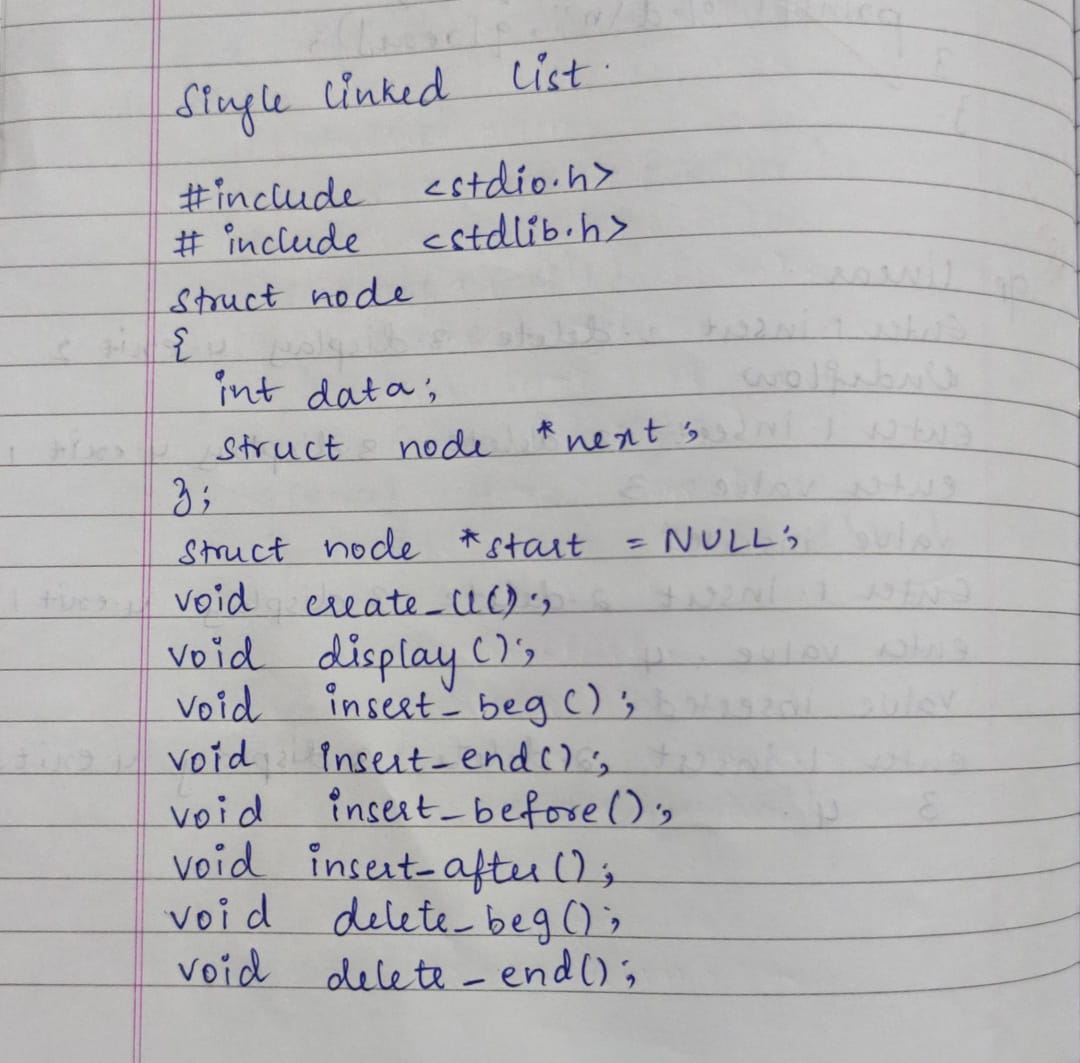 Single linked list.
#include <stdio.h>
# include <stdlib.h>
struct node
{
int data;
struct node *next;
};
struct node *start = NULL;
void create_ll();
void display();
void insert_beg();
void insert_end();
void insert_before();
void insert_after();
void delete_beg();
void delete_end();